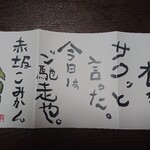 サクッと
言った。
今日は
ご馳走や。
赤坂こみかん